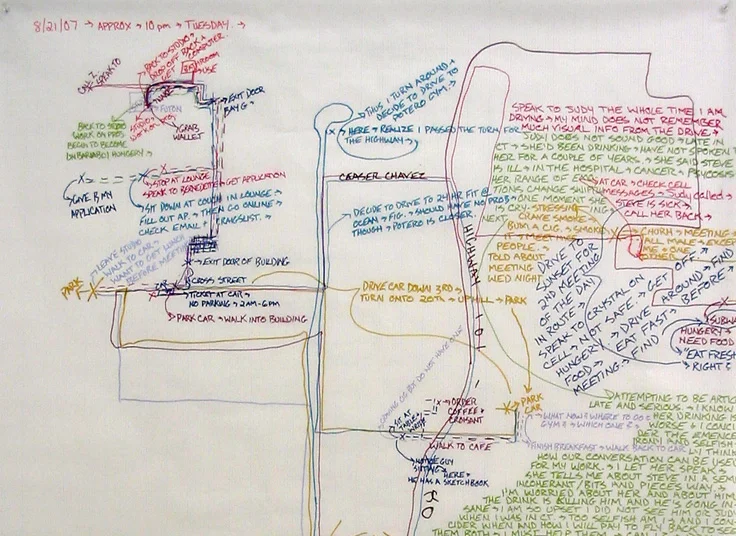 8/21/07 → APPROX → 10 pm → TUESDAY. →
BACK TO STUDIO
DROP OFF BACK &
COMPUTER.
BATHROOM
USE
FUTON
EXIT DOOR
BAY G
GRAB
WALLET
BACK TO STUDIO
WORK ON PIECE
BEGIN TO BECOME
HUNGRY →
GIVE BF MY
APPLICATION
STOP AT LOUNGE
SPEAK TO BERNADETTE → GET APPLICATION
SIT DOWN AT COUCH IN LOUNGE →
FILL OUT AP. → THEN GO ONLINE →
CHECK EMAIL & CRAIGSLIST. →
LEAVE STUDIO
WALK TO CAR →
WANT TO GET LUNCH
BEFORE MEETING
EXIT DOOR OF BUILDING
PARK
CROSS STREET
TICKET AT CAR →
NO PARKING → 2AM-6PM
PARK CAR → WALK INTO BUILDING
THUS I TURN AROUND &
DECIDE TO DRIVE TO
POTERO GYM. →
HERE → REALIZE I PASSED THE TURN FOR
THE HIGHWAY →
CEASER CHAVEZ
DECIDE TO DRIVE TO 24 HR FIT @
OCEAN → FIG. → SHOULD HAVE NO PROB →
THOUGH → POTERO IS CLOSER. →
HIGHWAY 101
DRIVE CAR DOWN 3RD →
TURN ONTO 20TH → UPHILL → PARK
PARK
CAR
ORDER
COFFEE &
CROISANT
SIT AT
TABLE &
WRITE
WALK TO CAFE
NOTICE GUY
SITTING → HERE →
HE HAS A SKETCHBOOK
WHAT NOW? WHERE TO GO?
GYM? → WHICH ONE?
FINISH BREAKFAST → WALK BACK TO CAR
SPEAK TO JUDY THE WHOLE TIME I AM
DRIVING → MY MIND DOES NOT REMEMBER
MUCH VISUAL INFO FROM THE DRIVE. →
JUDY DOES NOT SOUND GOOD → LATE IN
CT → SHE'D BEEN DRINKING → HAVE NOT SPOKEN T
HER FOR A COUPLE OF YEARS → SHE SAID STEVE
IS ILL → IN THE HOSPITAL → CANCER & PSYCOSIS
HER RANGE OF
TIONS CHANGE SWIF
ONE MOMENT SHE
CRY
NEXT
AT CAR → CHECK CELL
MESSAGES → Judy called →
STEVE IS SICK →
CALL HER BACK →
STRESSING →
CRAVE SMOKE
BUM A CIG. → SMOKE
MEETING
PEOPLE
TOLD ABOUT
MEETING
WED NIGHT
CHURCH → MEETING →
ALL MALE & EXCEPT
ME & ONE
OTHER
DRIVE TO
SUNSET FOR
2ND MEETING
OF THE DAY
IN ROUTE →
SPEAK TO CRYSTAL ON
CELL → NOT SAFE. → GET OFF. →
HUNGERY → DRIVE AROUND → FIND
FOOD → EAT FAST → BEFORE →
MEETING. → FIND
SUBWA
HUNGERY →
NEED FOOD
EAT FRESH
RIGHT &
ATTEMPTING TO BE ARTIC
LATE AND SERIOUS. → I KNOW
HER DRINKING IS
WORSE & I CONC
HOW OUR CONVERSATION CAN BE USED
FOR MY WORK. → I LET HER SPEAK →
SHE TELLS ME ABOUT STEVE IN A SEMI
INCOHERANT / BITS AND PIECE WAY. →
I'M WORRIED ABOUT HER AND ABOUT HIM.
THE DRINK IS KILLING HIM AND HE'S GOING IN
SANE → I AM SO UPSET I DID NOT SEE HIM OR JUDY
WHEN I WAS IN CT. → TOO SELFISH AM I → AND I CON
CIDER WHEN AND HOW I WILL PAY TO FLY BACK TO SEE
THEM BOTH → I MUST HELP THEM →